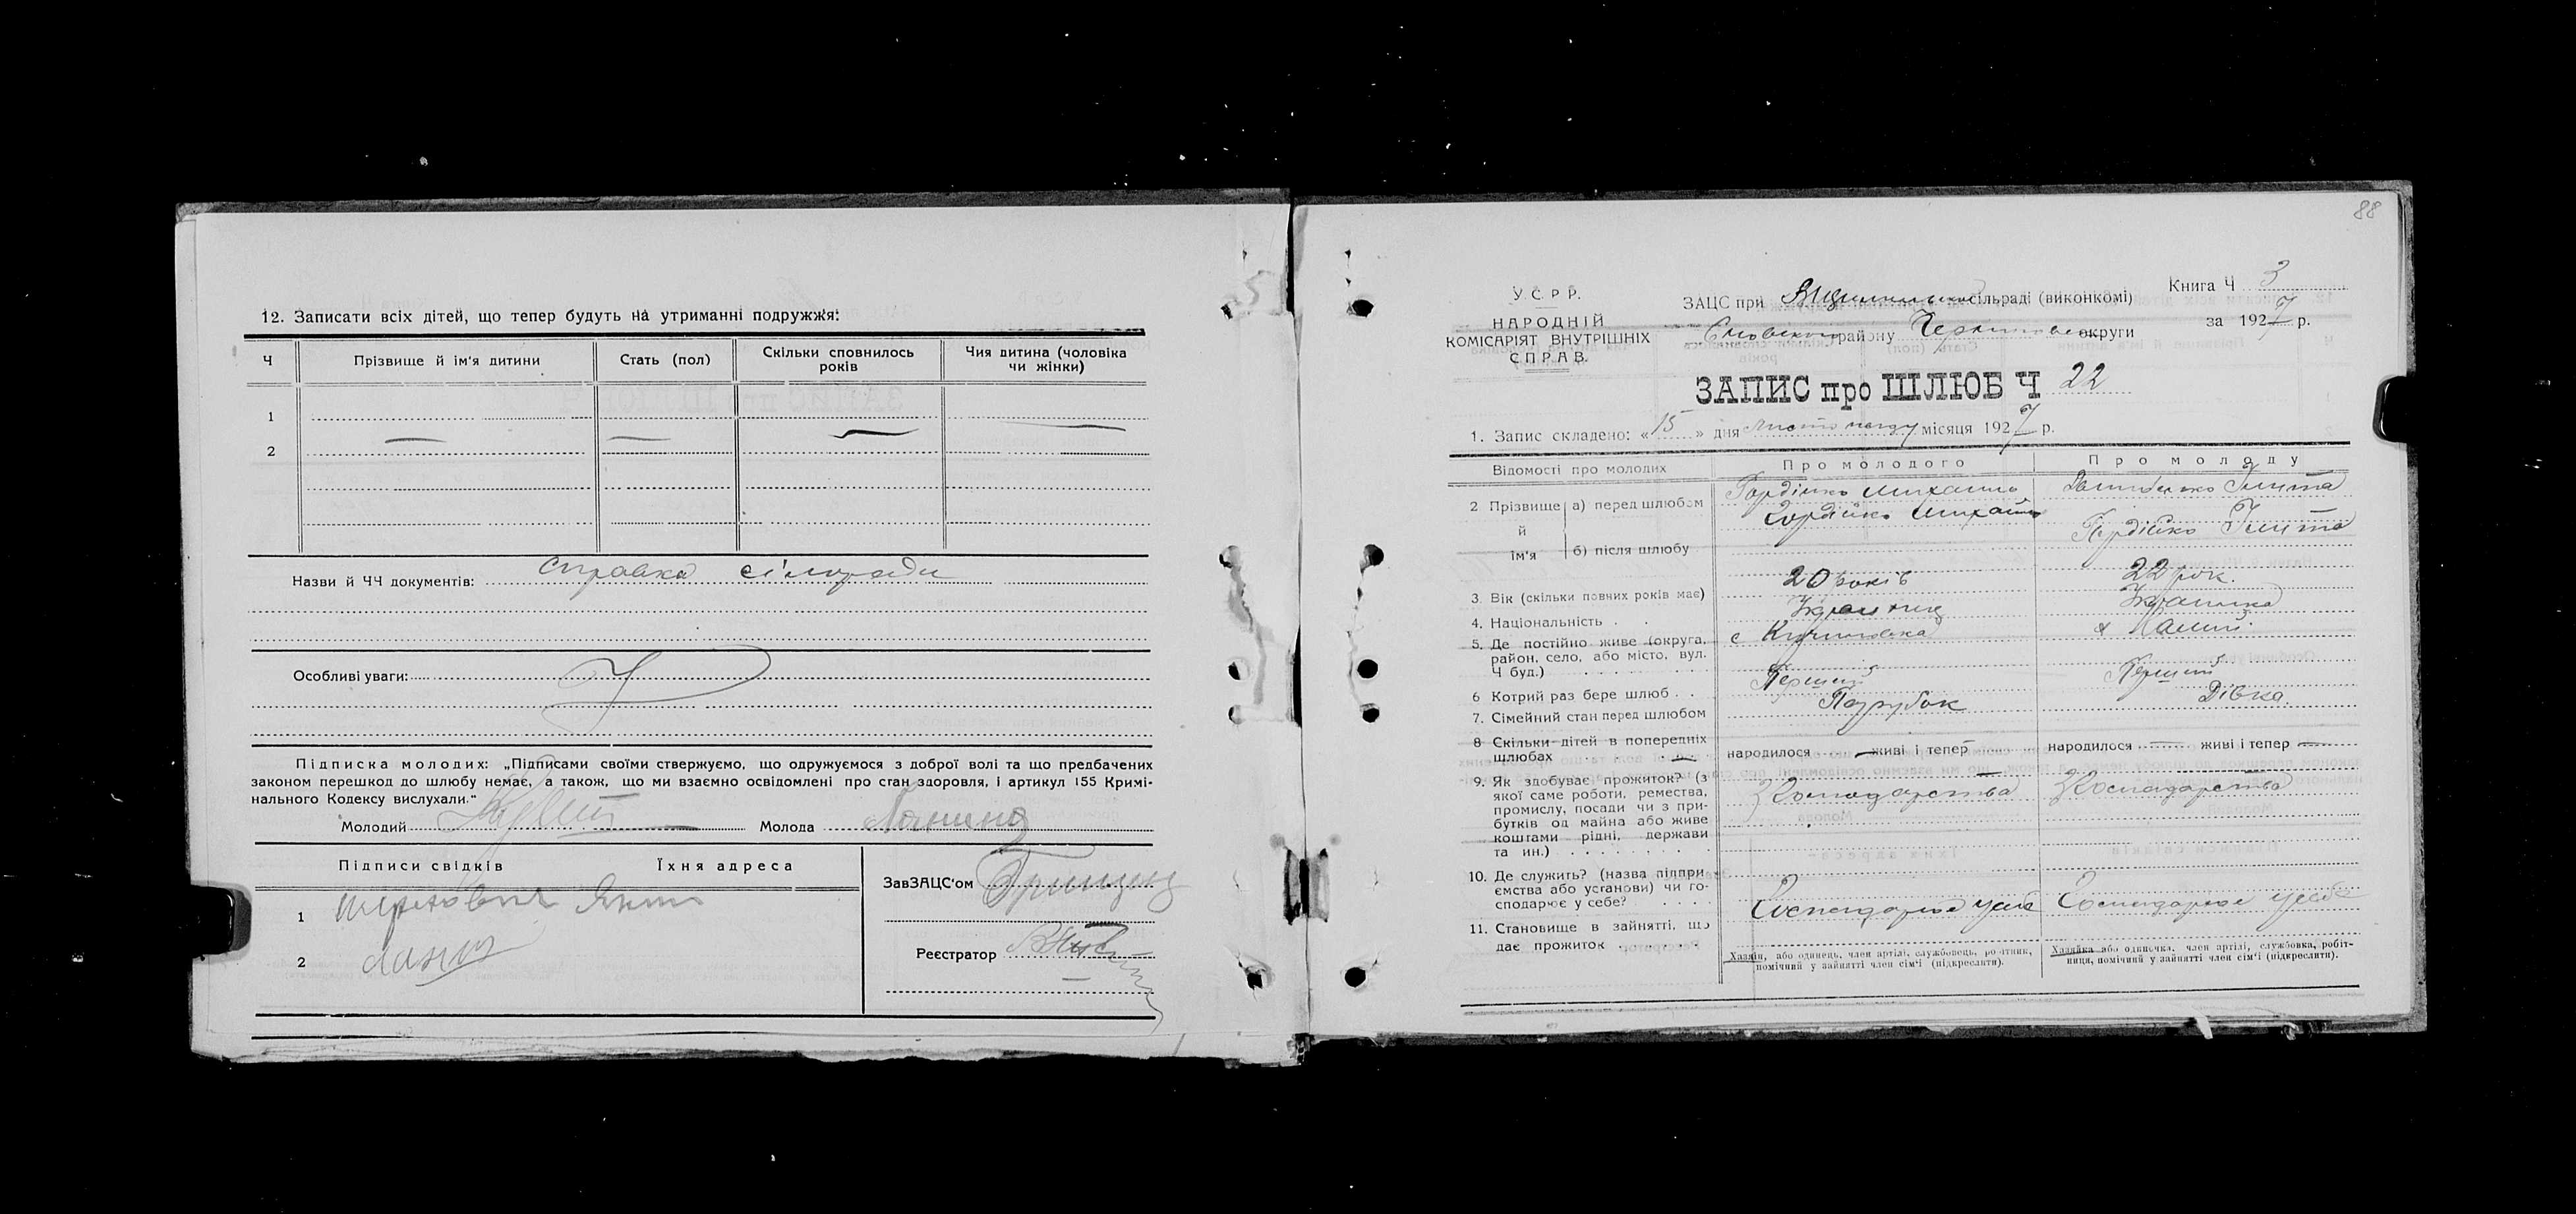 12. Записати всіх дітей, що тепер будуть на утриманні подружжя:
Ч
Прізвище й ім'я дитини
Стать (пол)
Скільки сповнилось
років
Чия дитина (чоловіка
чи жінки)
1
2
Назви й ЧЧ документів: Справка сільради
Особливі уваги:
Підписка молодих: „Підписами своїми стверджуємо, що одружуємося з доброї волі та що предбачених
законом перешкод до шлюбу немає, а також, що ми взаємно освідомлені про стан здоровля, і артикул 155 Кримі-
нального Кодексу вислухали."
Молодий
Молода
Підписи свідків
Їхня адреса
1
2
ЗавЗАЦС'ом
Реєстратор
88
У.С.Р.Р.
НАРОДНІЙ
КОМІСАРІЯТ ВНУТРІШНІХ
СПРАВ.
ЗАЦС при сільраді (виконкомі)
Сновського району Чернигівської округи
Книга Ч 3
за 1927 р.
ЗАПИС про ШЛЮБ Ч 22
1. Запис складено: «15» дня Листопаду місяця 1927 р.
Відомості про молодих
Про молодого
Про молоду
2 Прізвище й ім'я
а) перед шлюбом
Гордійко Михайло
б) після шлюбу
Гордійко Михайло
Гордійко
3. Вік (скільки повних років має)
20 років
22 рок.
4. Національність
Українец
Українка
5. Де постійно живе (округа,
район, село, або місто, вул.
Ч буд.)
с
6 Котрий раз бере шлюб
Перший
Перший
7. Сімейний стан перед шлюбом
Парубок
Дівка
8 Скільки дітей в попередніх
шлюбах
народилося — живі і тепер —
народилося — живі і тепер —
9. Як здобуває прожиток? (з
якої саме роботи, ремества,
промислу, посади чи з при-
бутків од майна або живе
коштами рідні, держави
та ин.)
З Господарства
З Господарства
10. Де служить? (назва підпри
ємства або установи) чи го-
сподарює у себе?
Господарює у себе
Господарює у себе
11. Становище в зайнятті, що
дає прожиток
Хазяїн, або одинець, член артілі, службовець, робітник,
помічний у зайнятті член сім'ї (підкреслити).
Хазяйка або одиначка, член артілі, службовка, робіт-
ниця, помічний у зайнятті член сім'ї (підкреслити).